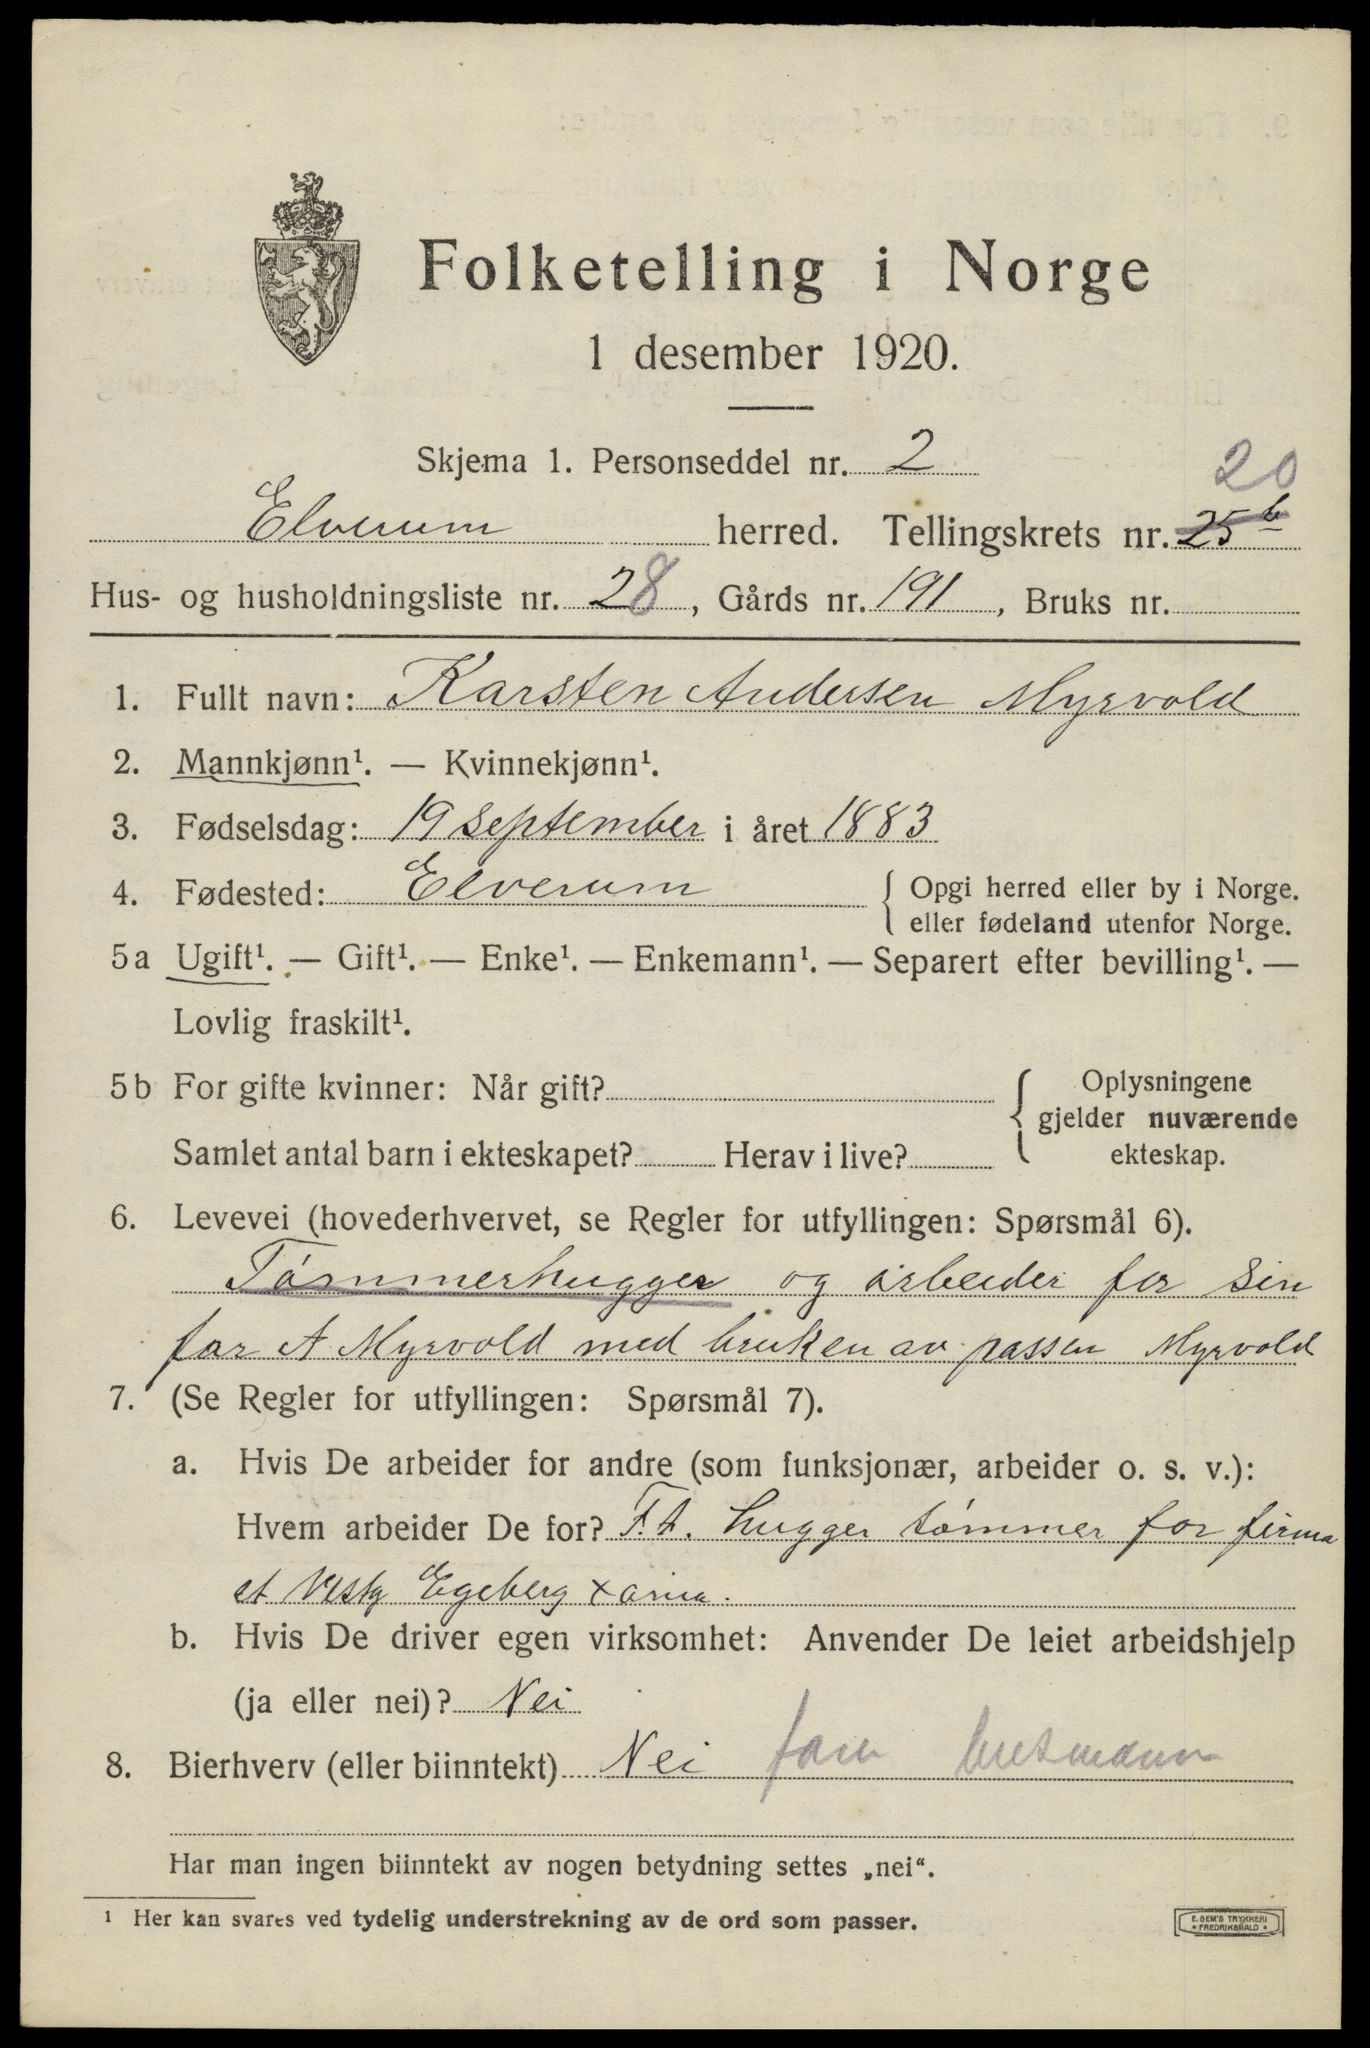 Folketelling i Norge
1 desember 1920.
Skjema 1. Personseddel nr. 2
20
Elverum herred. Tellingskrets nr. 25 b
Hus- og husholdningsliste nr. 28, Gårds nr. 191, Bruks nr.
1. Fullt navn: Karsten Andersen Myrvold
2. Mannkjønn¹. — Kvinnekjønn¹.
3. Fødselsdag: 19 september i året 1883
4. Fødested: Elverum { Opgi herred eller by i Norge.
eller fødeland utenfor Norge.
5a Ugift¹. — Gift¹. — Enke¹. — Enkemann¹. — Separert efter bevilling¹. —
Lovlig fraskilt¹.
5b For gifte kvinner: Når gift? { Oplysningene
gjelder nuværende
Samlet antal barn i ekteskapet? Herav i live? ekteskap.
6. Levevei (hovederhvervet, se Regler for utfyllingen: Spørsmål 6).
Tømmerhugger og arbeider for sin
far A Myrvold med bruken av Myrvold
7. (Se Regler for utfyllingen: Spørsmål 7).
a. Hvis De arbeider for andre (som funksjonær, arbeider o. s. v.):
Hvem arbeider De for? F.t. hugger tømmer for firma
Egeberg
b. Hvis De driver egen virksomhet: Anvender De leiet arbeidshjelp
(ja eller nei)? Nei
8. Bierhverv (eller biinntekt) Nei
Har man ingen biinntekt av nogen betydning settes „nei“.
¹ Her kan svares ved tydelig understrekning av de ord som passer.
E. SEM'S TRYKKERI
* FREDRIKSHALD *